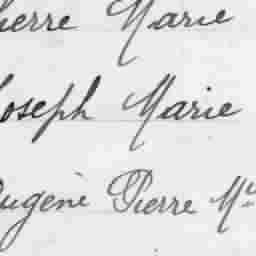 Pierre Marie
Joseph Marie
Eugène Pierre Mie